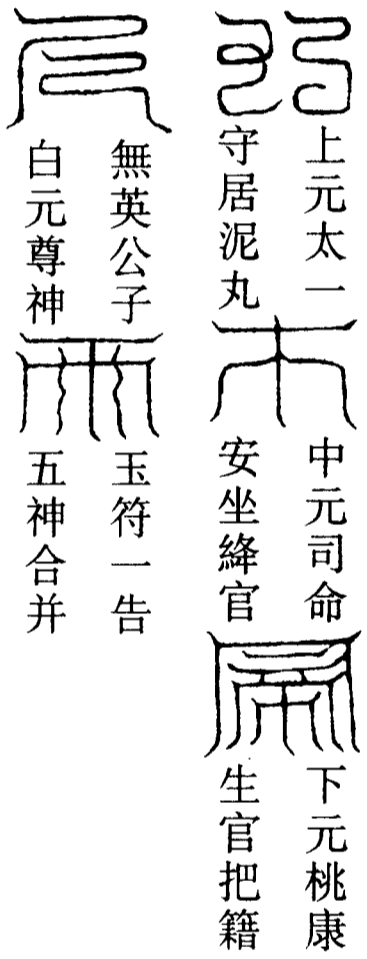 上元太一
守居泥丸
中元司命
安坐絳官
下元桃康
生官把籍
無英公子
白元尊神
玉符一告
五神合并